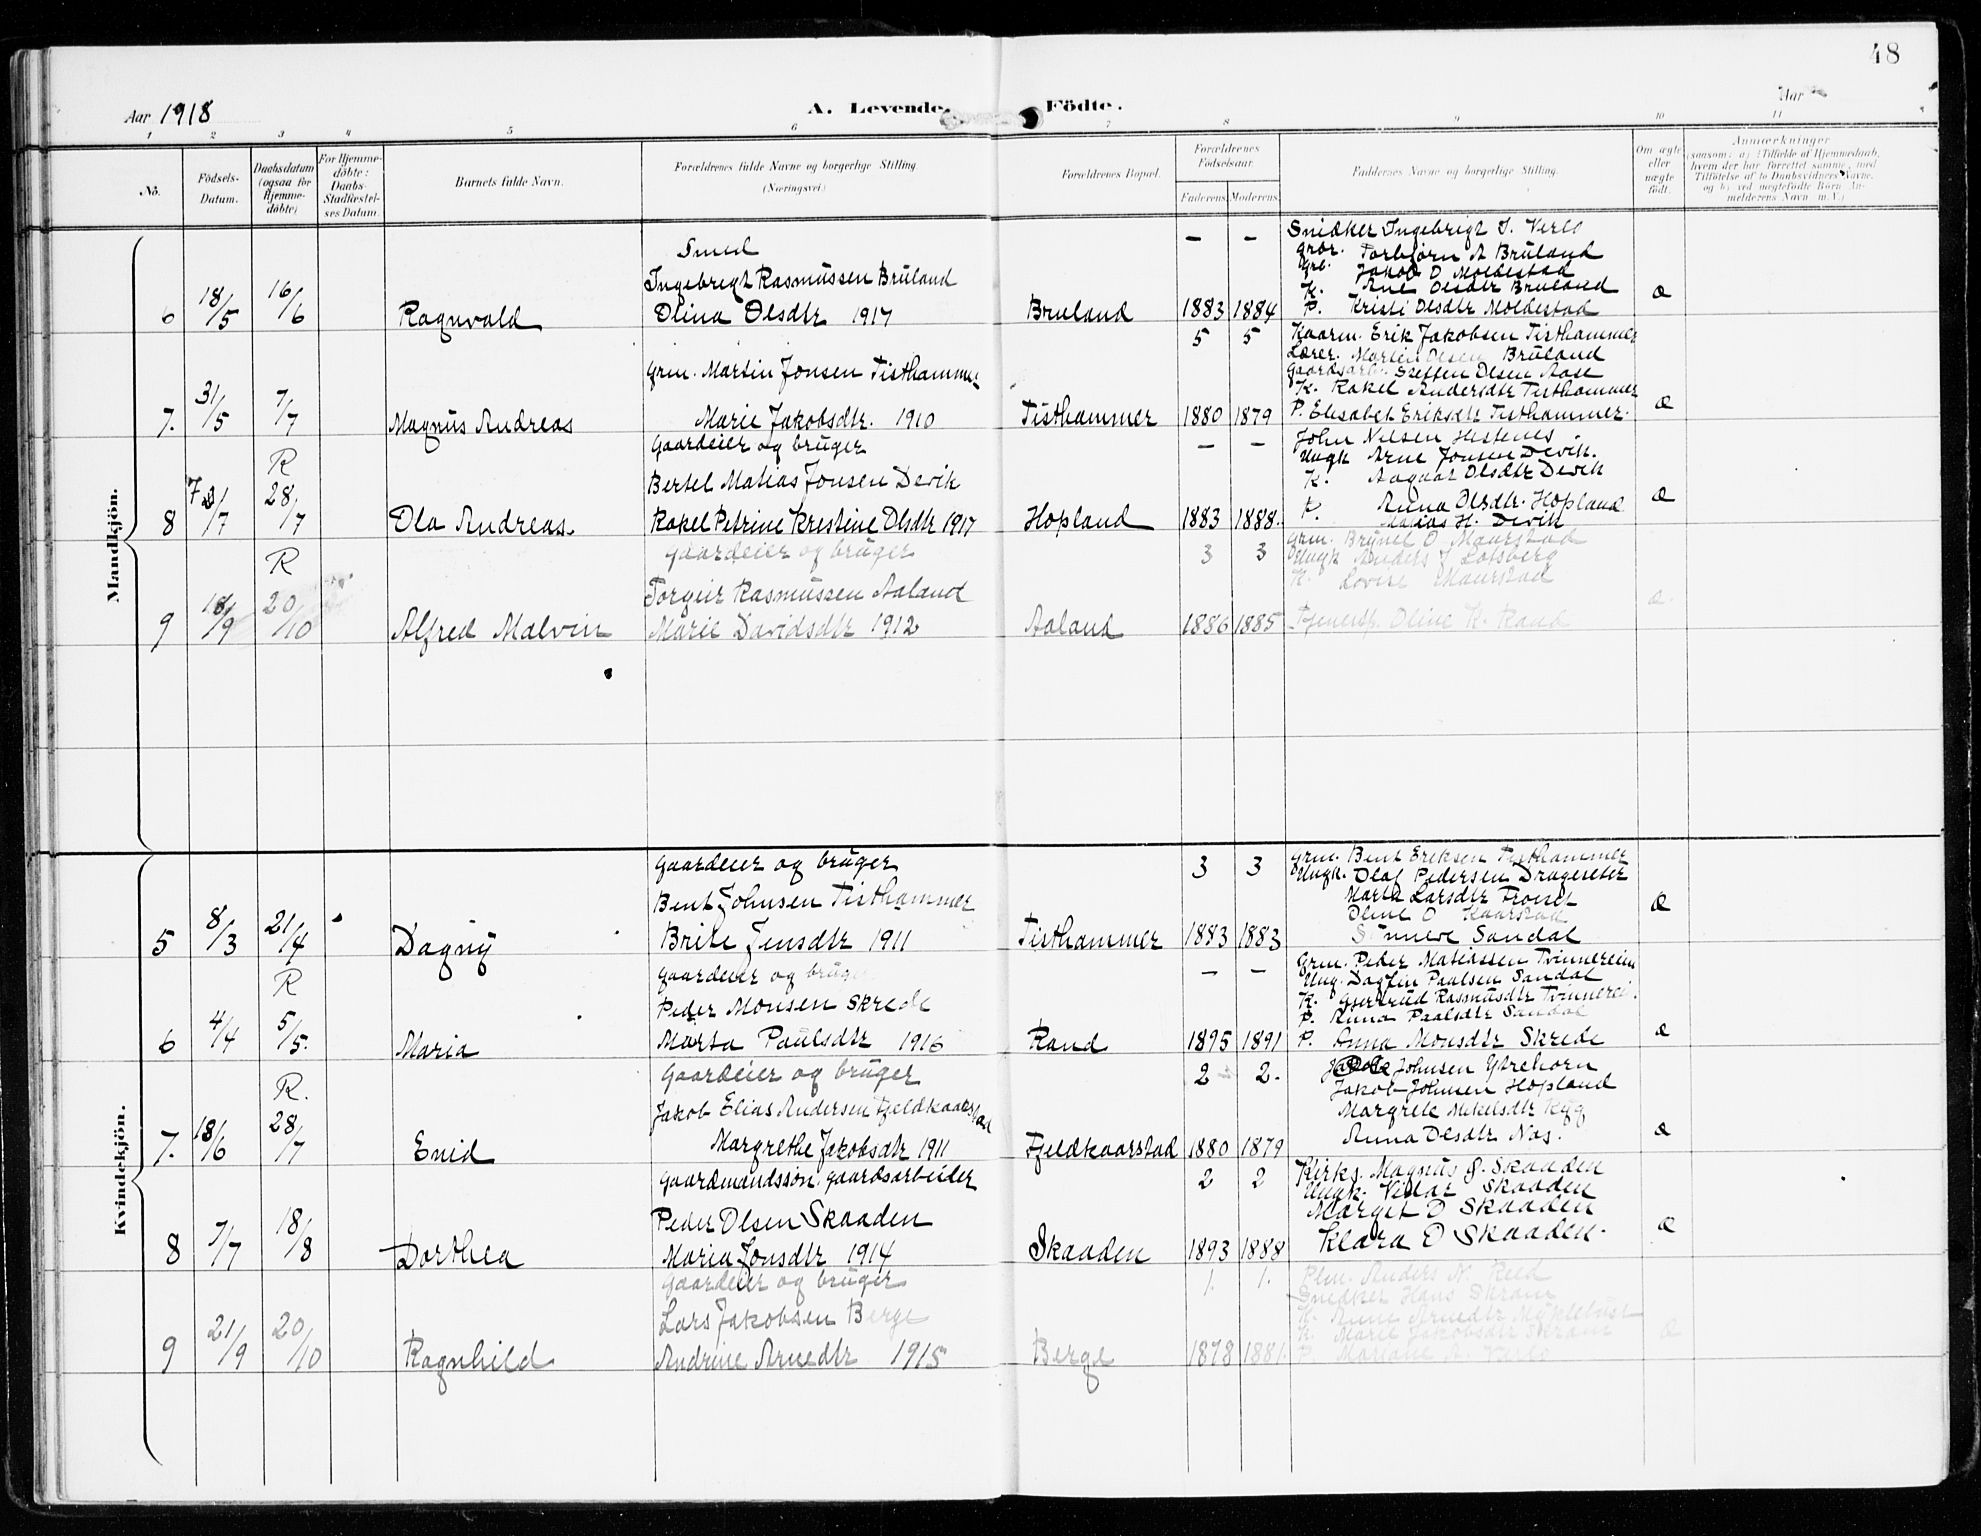 48
Aar 1918
A. Levende
Födte.
Aar
1 2 3 4 5 6 7 8 9 10 11
No.
Födsels-Datum.
Daabsdatum (ogsaa for Hjemme-döbte)
For Hjemme-döbte: Daabs Stadfæstel-ses Datum.
Barnets fulde Navn.
Forældrenes fulde Navne og borgerlige Stilling. (Næringsvei)
Forældrenes Bopæl.
Forældrenes Födselsaar.
Faderens Moderens
Faddernes Navne og borgerlige Stilling.
Om ægte eller uægte födt.
Anmerkninger
(saasom: a) i Tilfælde af Hjemmedaab, hvem der har forrettet samme, med Tilföielse af to Daabsvidners Navne, og b) ved uægtefödte Börn An-melderens Navn m. V.)
Mandkjön.
6 18/5 16/6 Ragnvald
Smed
Ingebrigt Rasmussen Bruland
Olina Olsdtr 1917
Bruland
– –
1883 1884
Snidker Ingebrigt J. Verlo
Torbjørn A Bruland
Jakob O Moldestad
K. Ane Olsdtr Bruland
P. Kristi Olsdtr Moldestad
æ
7. 31/5 7/7 Magnus Andreas
Grm. Martin Jonsen Tisthammer
Marie Jakobsdtr. 1910
Tisthammer
5 5
1880 1879
Kaarm. Erik Jakobsen Tisthammer
Lærer. Martin Olsen Bruland
Gaardsarb. Steffen Olsen Aase
K. Rakel Andersdtr Tisthammer
P. Elisabet Eriksdtr Tisthammer.
æ
8 7/7 R 28/7 Ola Andreas.
Gaardeier og bruger
Bertel Matias Jonsen Devik
Rakel Petrine Kristine Olsdtr 1917
Hopland
– –
1883 1888.
John Nilsen Hestenes
Ungk Arne Jonsen Devik.
K. Aagaat Olsdtr Devik
P. Anna Olsdtr. Hopland
Matias H. Devik
æ
9 18/9 R 20/10 Alfred Malvin
Gaardeier og bruger
Torgeir Rasmussen Aaland
Marie Davidsdtr 1912
Aaland
3 3
1886 1885
Grm. Brynel O Maurstad
Ungk Anders J Lotsberg
K. Lovise Maurstad
Tjenersp. Oline K. Rand
æ.
Kvindekjön.
5 8/3 21/4 Dagny
Gaardeier og bruger
Bent Johnsen Tisthammer
Brite Jensdtr 1911
Tisthammer
3 3
1883 1883
Grm. Bent Eriksen Tisthammer
Ungk. Olaf Pedersen Drageseter
Marta Larsdtr
Oline O Kaarstad
Sünneve Sandal
æ
6 4/4 R 5/5. Maria
Gaardeier og bruger
Peder Monsen Skrede
Marta Paulsdtr 1916
Rand
– –
1895 1891
Grm. Peder Matiassen Tvinnereim
Ung. Dagfin Paulsen Sandal
K. Gjertrud Rasmusdtr Tvinnerei.
P. Anna Paalsdtr Sandal
P. Anna Monsdtr Skrede
æ
7. 18/6 R. 28/7 Enid
Gaardeier og bruger
Jakob Elias Andersen Fjeldkaarstad
Margrethe Jakobsdtr 1911
Fjeldkaarstad
2 2.
1880 1879
Johnsen Ytrehorn
Jakob Johnsen Hopland
Margrete Mikelsdtr Ryg
Anna Olsdtr Nos.
æ
8 7/7 18/8 Dorthea
Gaardmandssøn. gaardsarbeider
Peder Olsen Skaaden
Maria Jonsdtr 1914
Skaaden
2 2
1893 1888
Kirks. Magnus J. Skaaden
Ungk. Vidar Skaaden
Margit O Skaaden
Klara O Skaaden.
æ
9 21/9 20/10 Ragnhild
Gaardeier og bruger
Lars Jakobsen Berge
Andrine Arnedtr 1915
Berge
1. 1.
1878 1881
Plm. Anders N. Reed
Snedker Hans Skram
K. Anne Arnedtr Myklebust
K. Marie Jakobsdtr Skram
P. Mariane A. Verlo
æ